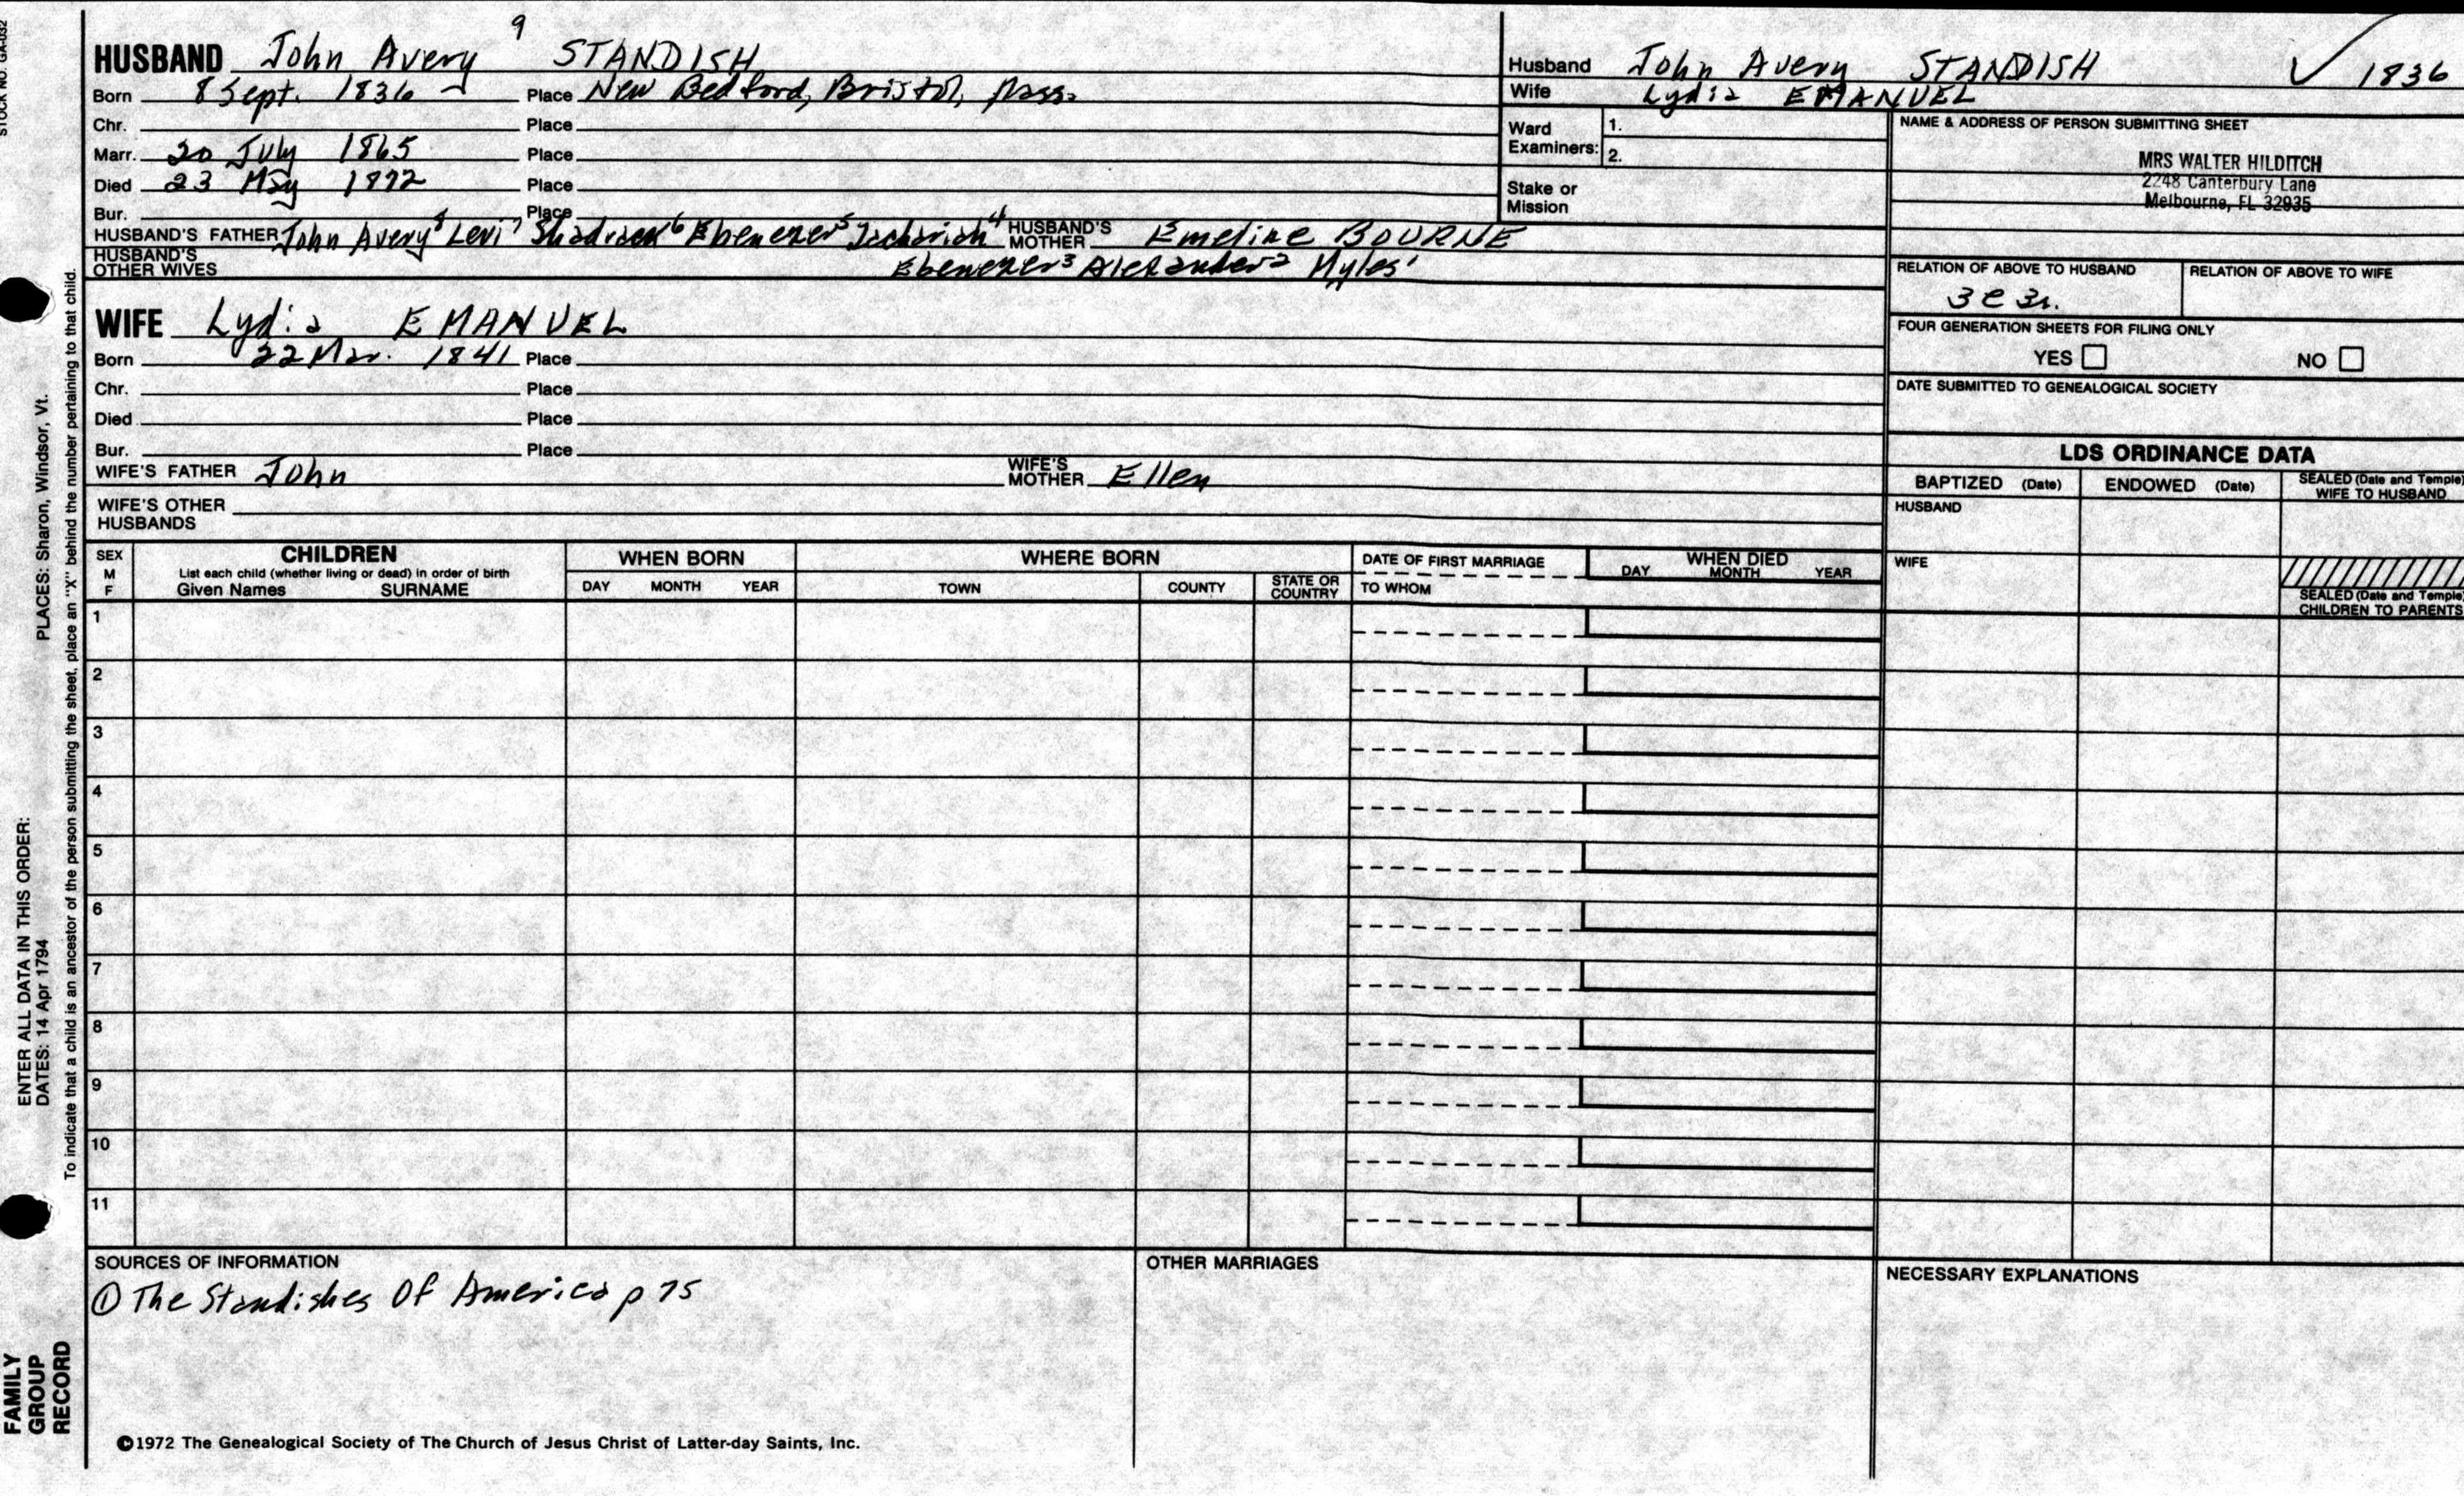 STOCK NO. GA-032
HUSBAND John Avery 9 STANDISH
Born 8 Sept. 1836 Place New Bedford, Bristol, Mass.
Chr. Place
Marr. 20 July 1865 Place
Died 23 May 1872 Place
Bur. Place
HUSBAND'S FATHER John Avery 8 Levi 7 Shadrack 6 Ebenezer 5 Zachariah 4 HUSBAND'S MOTHER Emeline BOURNE
HUSBAND'S OTHER WIVES Ebenezer 3 Alexander 2 Myles 1
WIFE Lydia EMANUEL
Born 22 Mar. 1841 Place
Chr. Place
Died Place
Bur. Place
WIFE'S FATHER John WIFE'S MOTHER Ellen
WIFE'S OTHER HUSBANDS
Husband John Avery STANDISH 1836
Wife Lydia EMANUEL
Ward Examiners: 1.
2.
Stake or Mission
NAME & ADDRESS OF PERSON SUBMITTING SHEET
MRS WALTER HILDITCH
2248 Canterbury Lane
Melbourne, FL 32935
RELATION OF ABOVE TO HUSBAND RELATION OF ABOVE TO WIFE
3c 3r.
FOUR GENERATION SHEETS FOR FILING ONLY
YES NO
DATE SUBMITTED TO GENEALOGICAL SOCIETY
LDS ORDINANCE DATA
BAPTIZED (Date) ENDOWED (Date) SEALED (Date and Temple) WIFE TO HUSBAND
HUSBAND
WIFE
SEALED (Date and Temple)
CHILDREN TO PARENTS
SEX M F
CHILDREN
List each child (whether living or dead) in order of birth
Given Names SURNAME
WHEN BORN
DAY MONTH YEAR
WHERE BORN
TOWN COUNTY STATE OR COUNTRY
DATE OF FIRST MARRIAGE
TO WHOM
WHEN DIED
DAY MONTH YEAR
1
2
3
4
5
6
7
8
9
10
11
SOURCES OF INFORMATION
① The Standishes Of America p 75
OTHER MARRIAGES
NECESSARY EXPLANATIONS
©1972 The Genealogical Society of The Church of Jesus Christ of Latter-day Saints, Inc.
ENTER ALL DATA IN THIS ORDER:
DATES: 14 Apr 1794 PLACES: Sharon, Windsor, Vt.
To indicate that a child is an ancestor of the person submitting the sheet, place an "X" behind the number pertaining to that child.
FAMILY
GROUP
RECORD